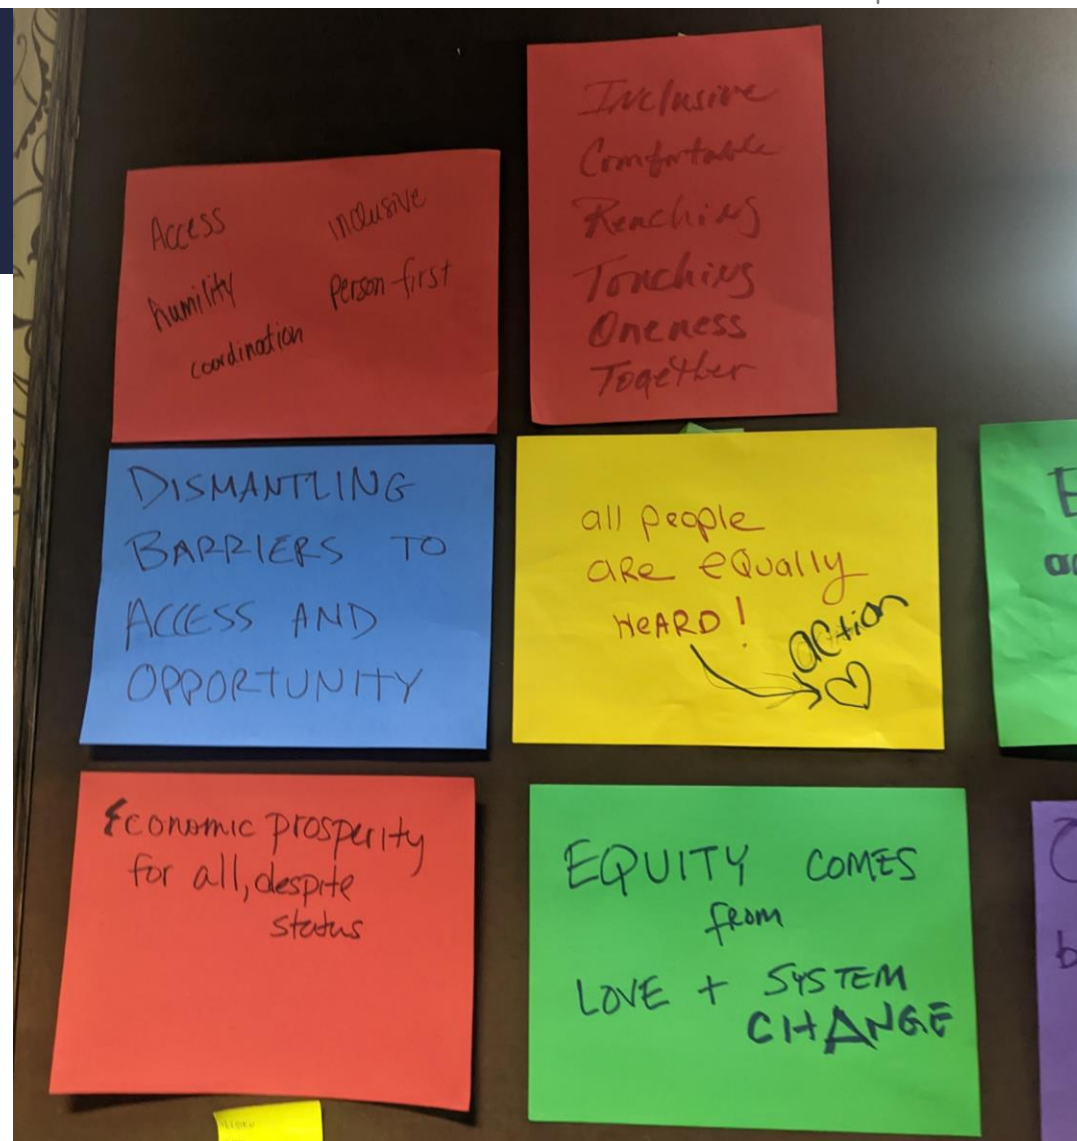 Access
humility
coordination
inclusive
person-first
Inclusive
Comfortable
Reaching
Touching
Oneness
Together
DISMANTLING
BARRIERS TO
ACCESS AND
OPPORTUNITY
all people
are equally
HeARD!
action
Economic prosperity
for all, despite
status
EQUITY COMES
from
LOVE + SYSTEM
CHANGE